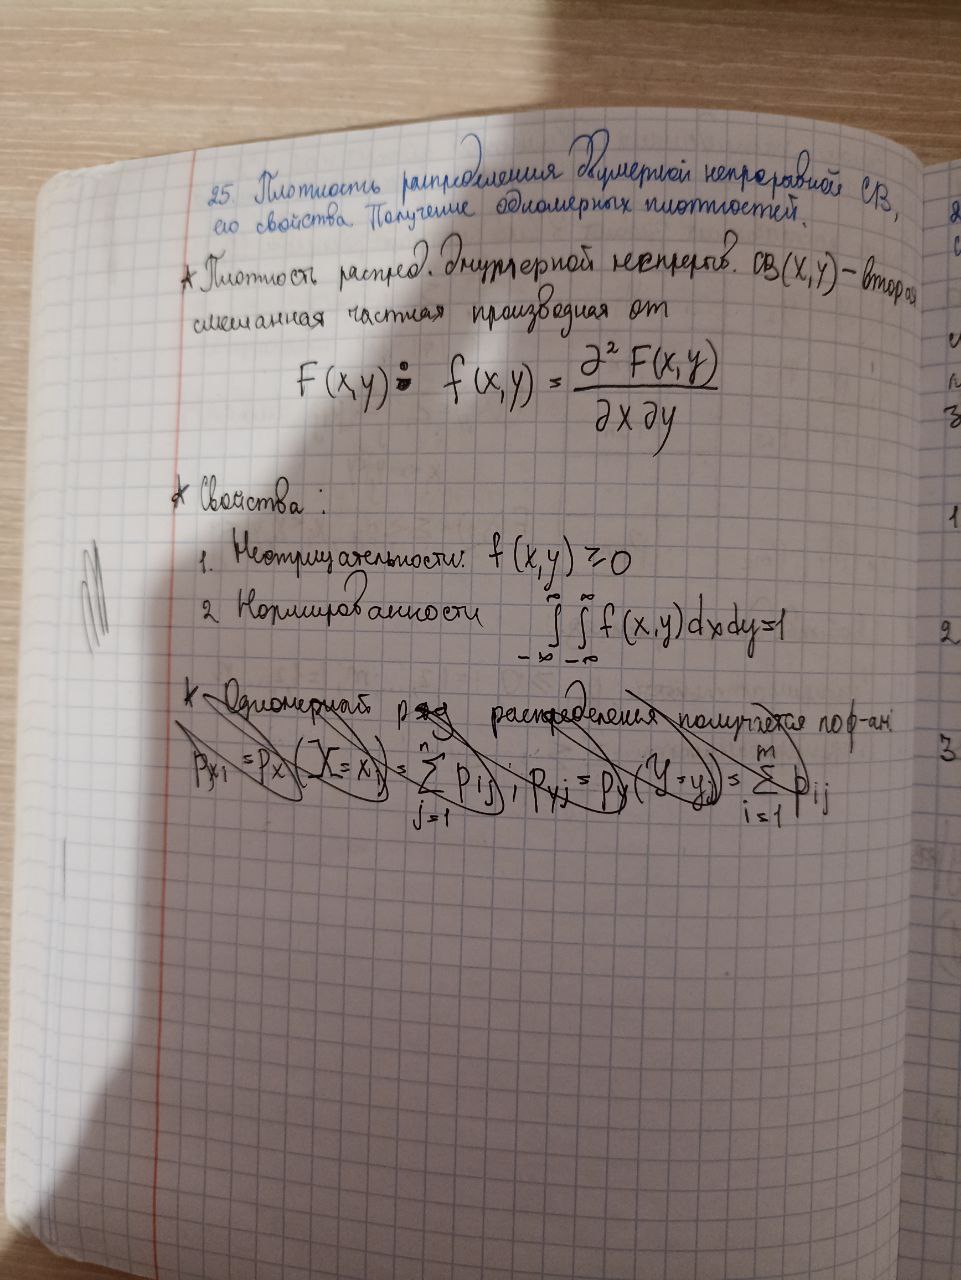 25. Плотность распределения двумерной непрерывной СВ,
его свойства. Получение одномерных плотностей.
* Плотность распред. двумерной непрерыв. СВ (X,Y) – вторая
смешанная частная производная от
F(x,y): f(x,y) = ∂² F(x,y) / ∂x ∂y
* Свойства:
1. Неотрицательности: f(x,y) ≥ 0
2 Нормированности ∫_{-∞}^{∞} ∫_{-∞}^{∞} f(x,y) dx dy = 1
* Одномерный ряд распределения получается по ф-ам:
p_{x_i} = p_x (X = x_i) = Σ_{j=1}^{n} p_{ij} ; p_{y_j} = p_y (Y = y_j) = Σ_{i=1}^{m} p_{ij}
2
3
1
2
3